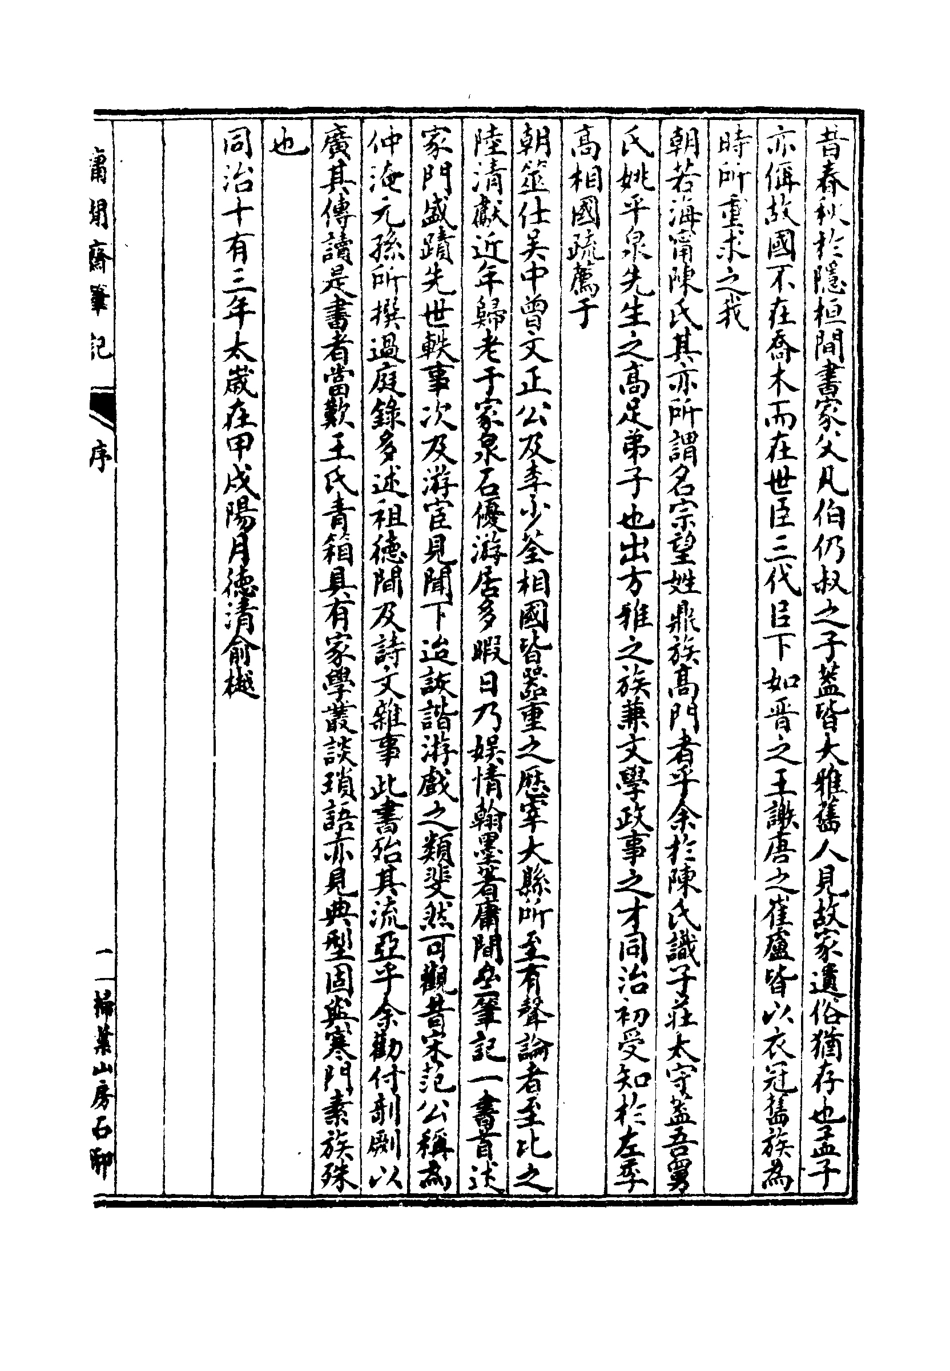 昔春秋於隱桓間書家父凡伯仍叔之子蓋皆大雅舊人見故家遺俗猶存也孟子
亦稱故國不在喬木而在世臣三代以下如晉之王謝唐之崔盧皆以衣冠舊族為
時所重求之我
朝若海甯陳氏其亦所謂名宗望姓鼎族高門者乎余於陳氏識子莊太守蓋吾舅
氏姚平泉先生之高足弟子也出方雅之族兼文學政事之才同治初受知於左季
高相國疏薦于
朝筮仕吳中曾文正公及李少荃相國皆器重之歷宰大縣所至有聲論者至比之
陸清獻近年歸老于家泉石優游居多暇日乃娛情翰墨著庸閒齋筆記一書首述
家門盛蹟先世軼事次及游宦見聞下迨詼諧游戲之類斐然可觀昔宋范公稱為
仲淹元孫所撰過庭錄多述祖德間及詩文雜事此書殆其流亞乎余勸付剞劂以
廣其傳讀是書者當歎王氏青箱具有家學叢談瑣語亦見典型固與寒門素族殊
也
同治十有三年太歲在甲戌陽月德清俞樾
庸閒齋筆記
序
一
掃葉山房石印